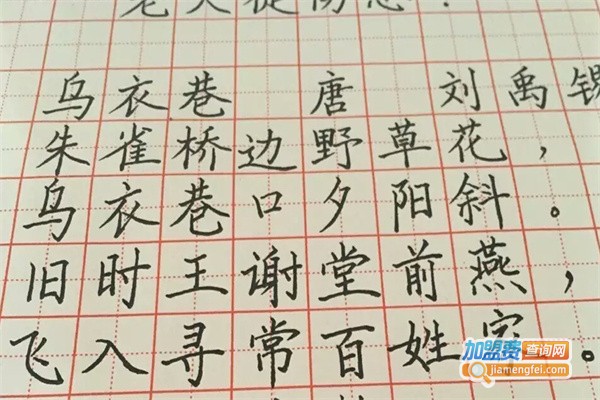 老大徒伤悲！
乌衣巷 唐 刘禹锡
朱雀桥边野草花，
乌衣巷口夕阳斜。
旧时王谢堂前燕，
飞入寻常百姓家。
加盟费查询网
jiamengfei.com